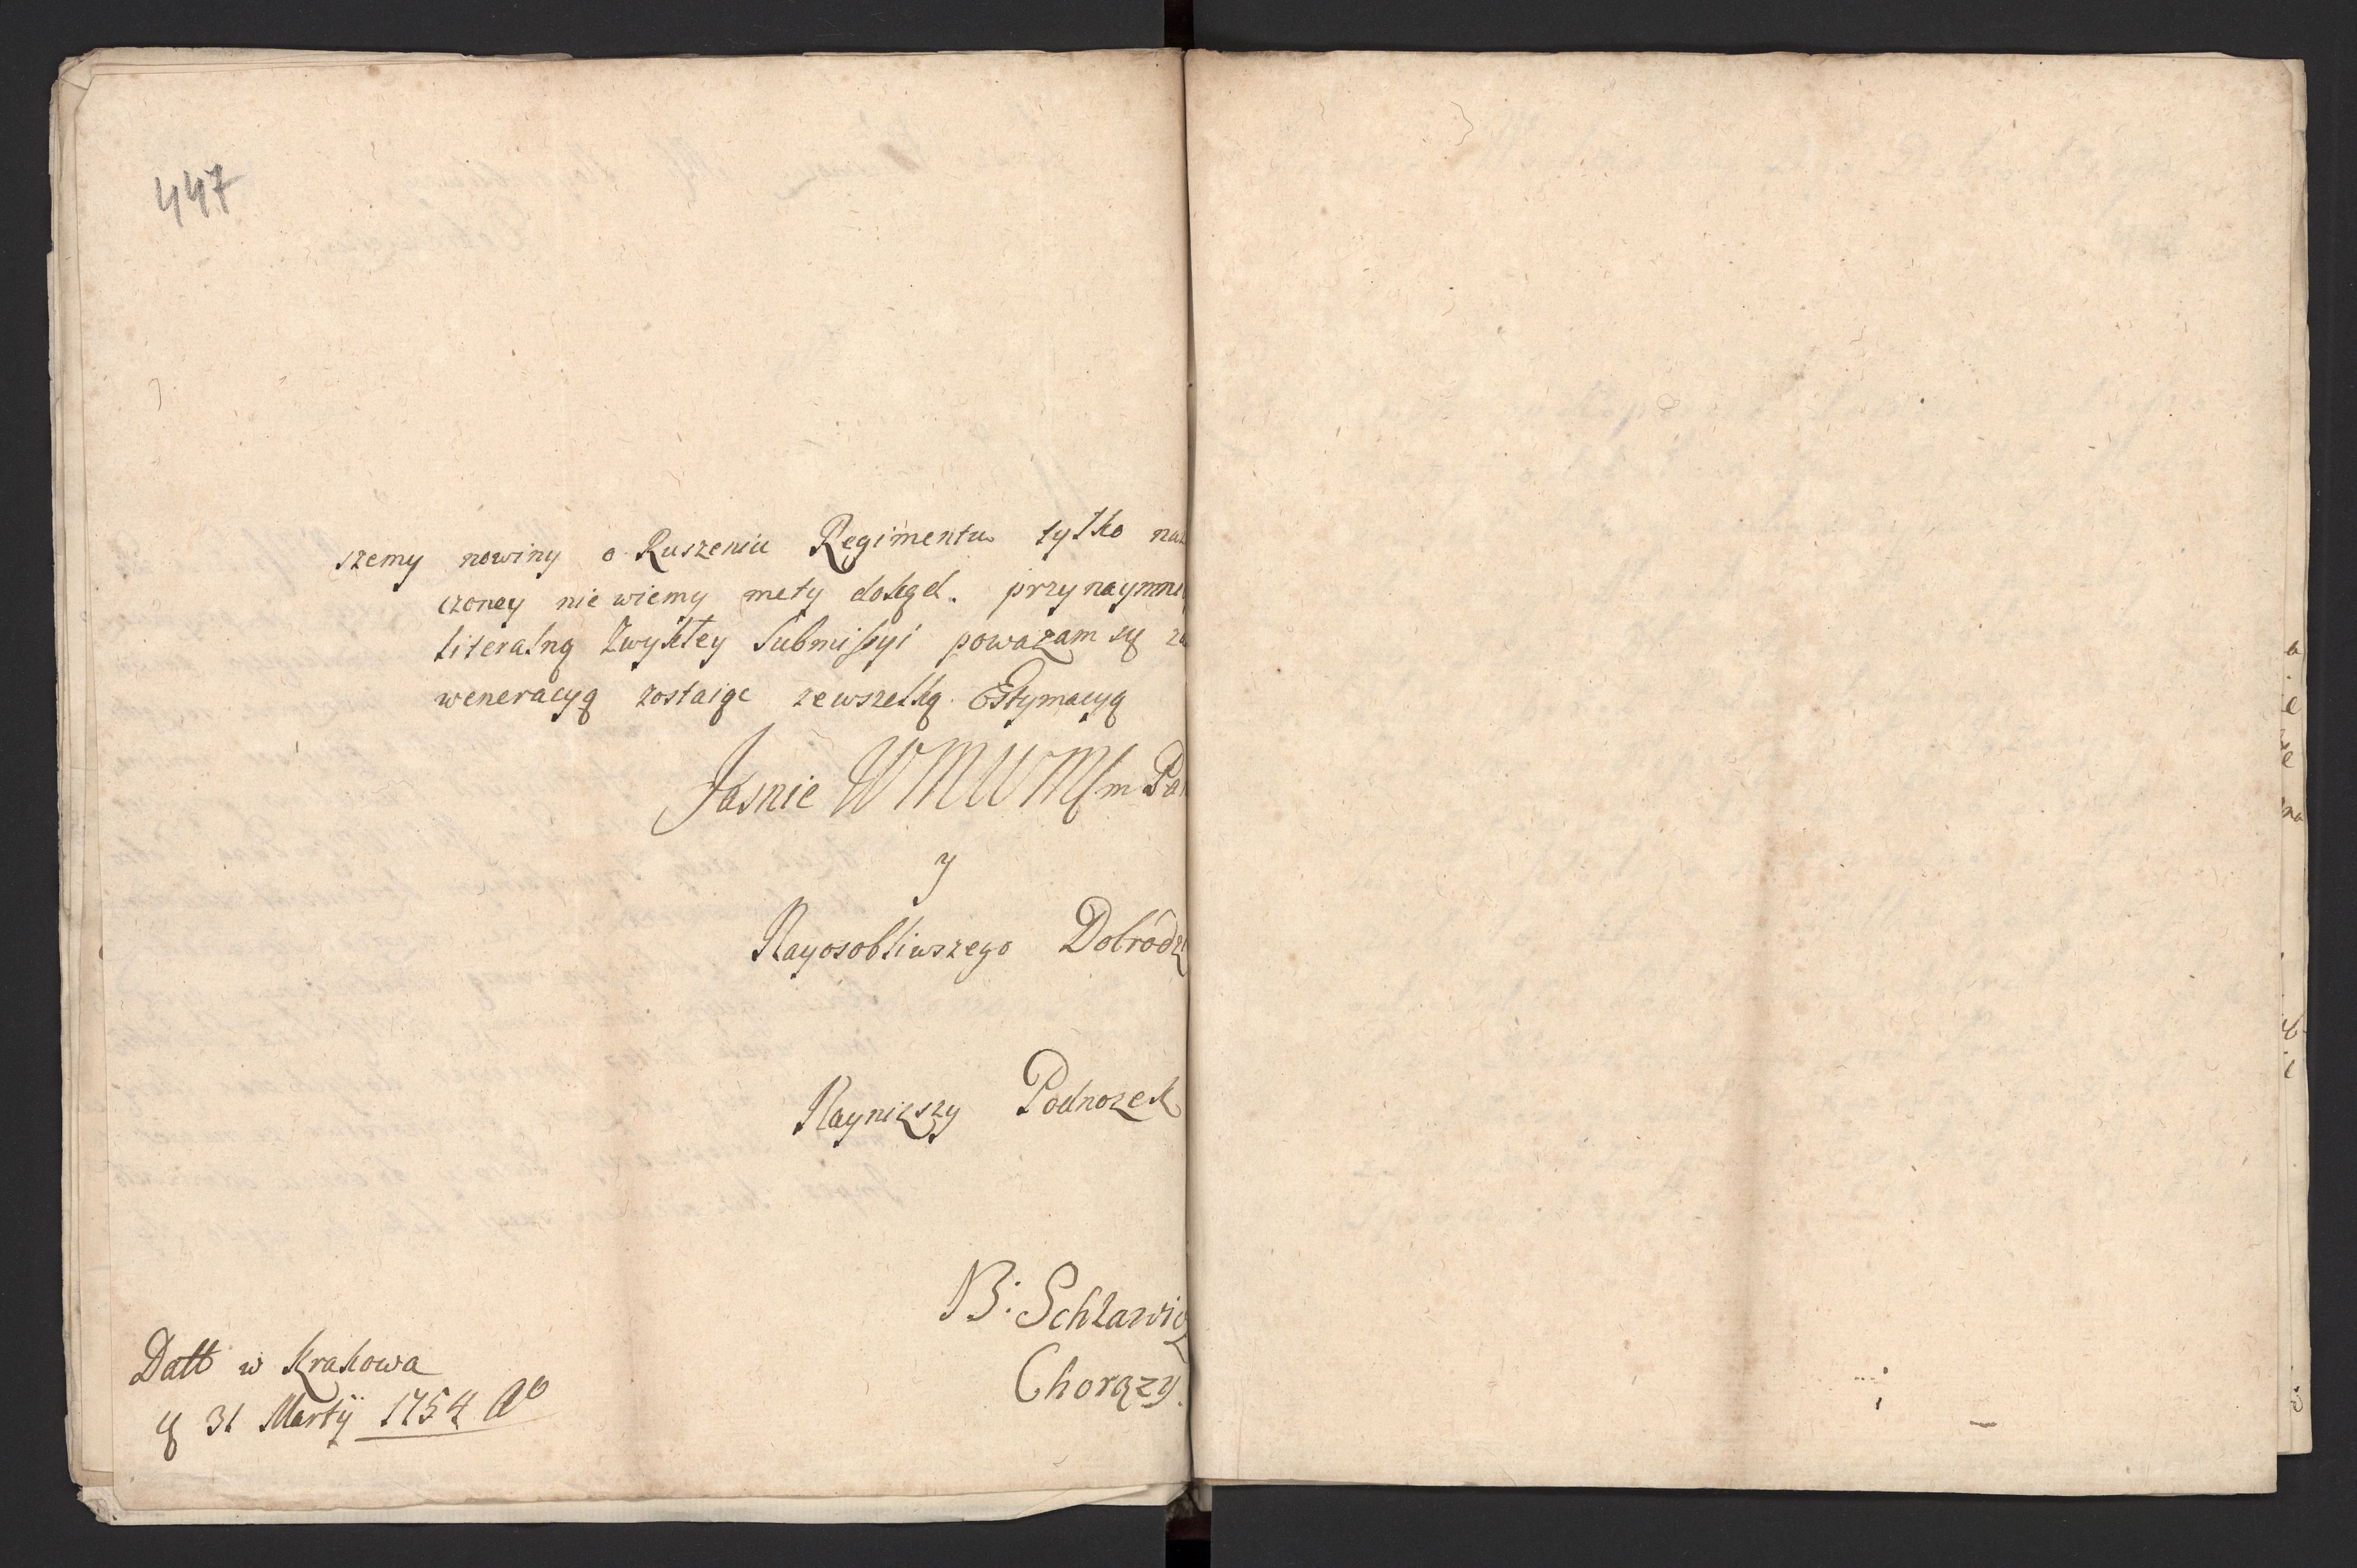 447
szemy nowiny o Ruszeniu Regimentu tylko
czoney nie wiemy mety dokąd. przynaymni
literalną Zwykłey Submissyi poważam się
weneracyą zostaiąc zewszelką Estymacyą
Jasnie WMWM m Pa
y
Nayosobliwszego Dobrodzi
Nayniższy Podnożek
B: Schlawi
Chorązy.
Datt w Krakowa
d 31 Martij 1754 Ao